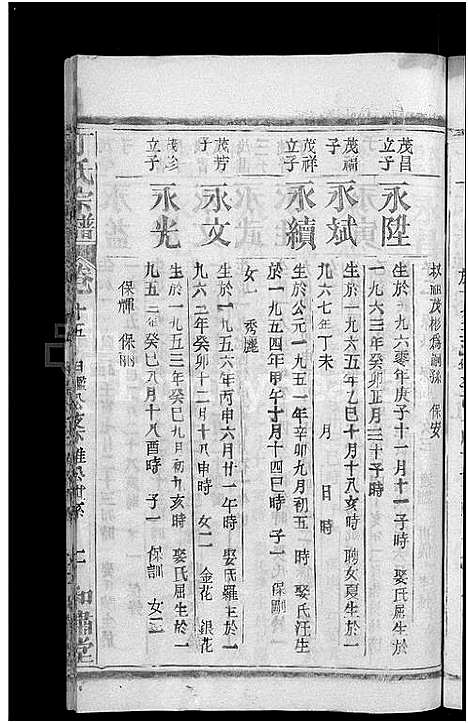 叔祖茂彬爲嗣孫 保安
茂昌立子
永陞
生於一九六零年庚子十一月十一子時 娶氏屈生於
一九六三年癸卯正月三十子時
茂福子
永斌
生於一九六五年乙巳十月十八亥時 聘女夏生於一
九六七年丁未 月 日時
茂祥立子
永續
生於公元一九五一年辛卯九月初五 時 娶氏汪生
於一九五四年甲午十月十四巳時 子一 保剛
女一 秀麗
茂芳子
永文
生於一九五六年丙申六月廿一午時 娶氏羅生於一
九六三年癸卯十二月十八申時 女二 金花 銀花
立子
永光
生於一九五三年癸巳九月初九亥時 娶氏屈生於一
九五三年癸巳八月十八酉時 子一 保訓 女二
保輝 保麗
丁氏宗譜
卷
十五